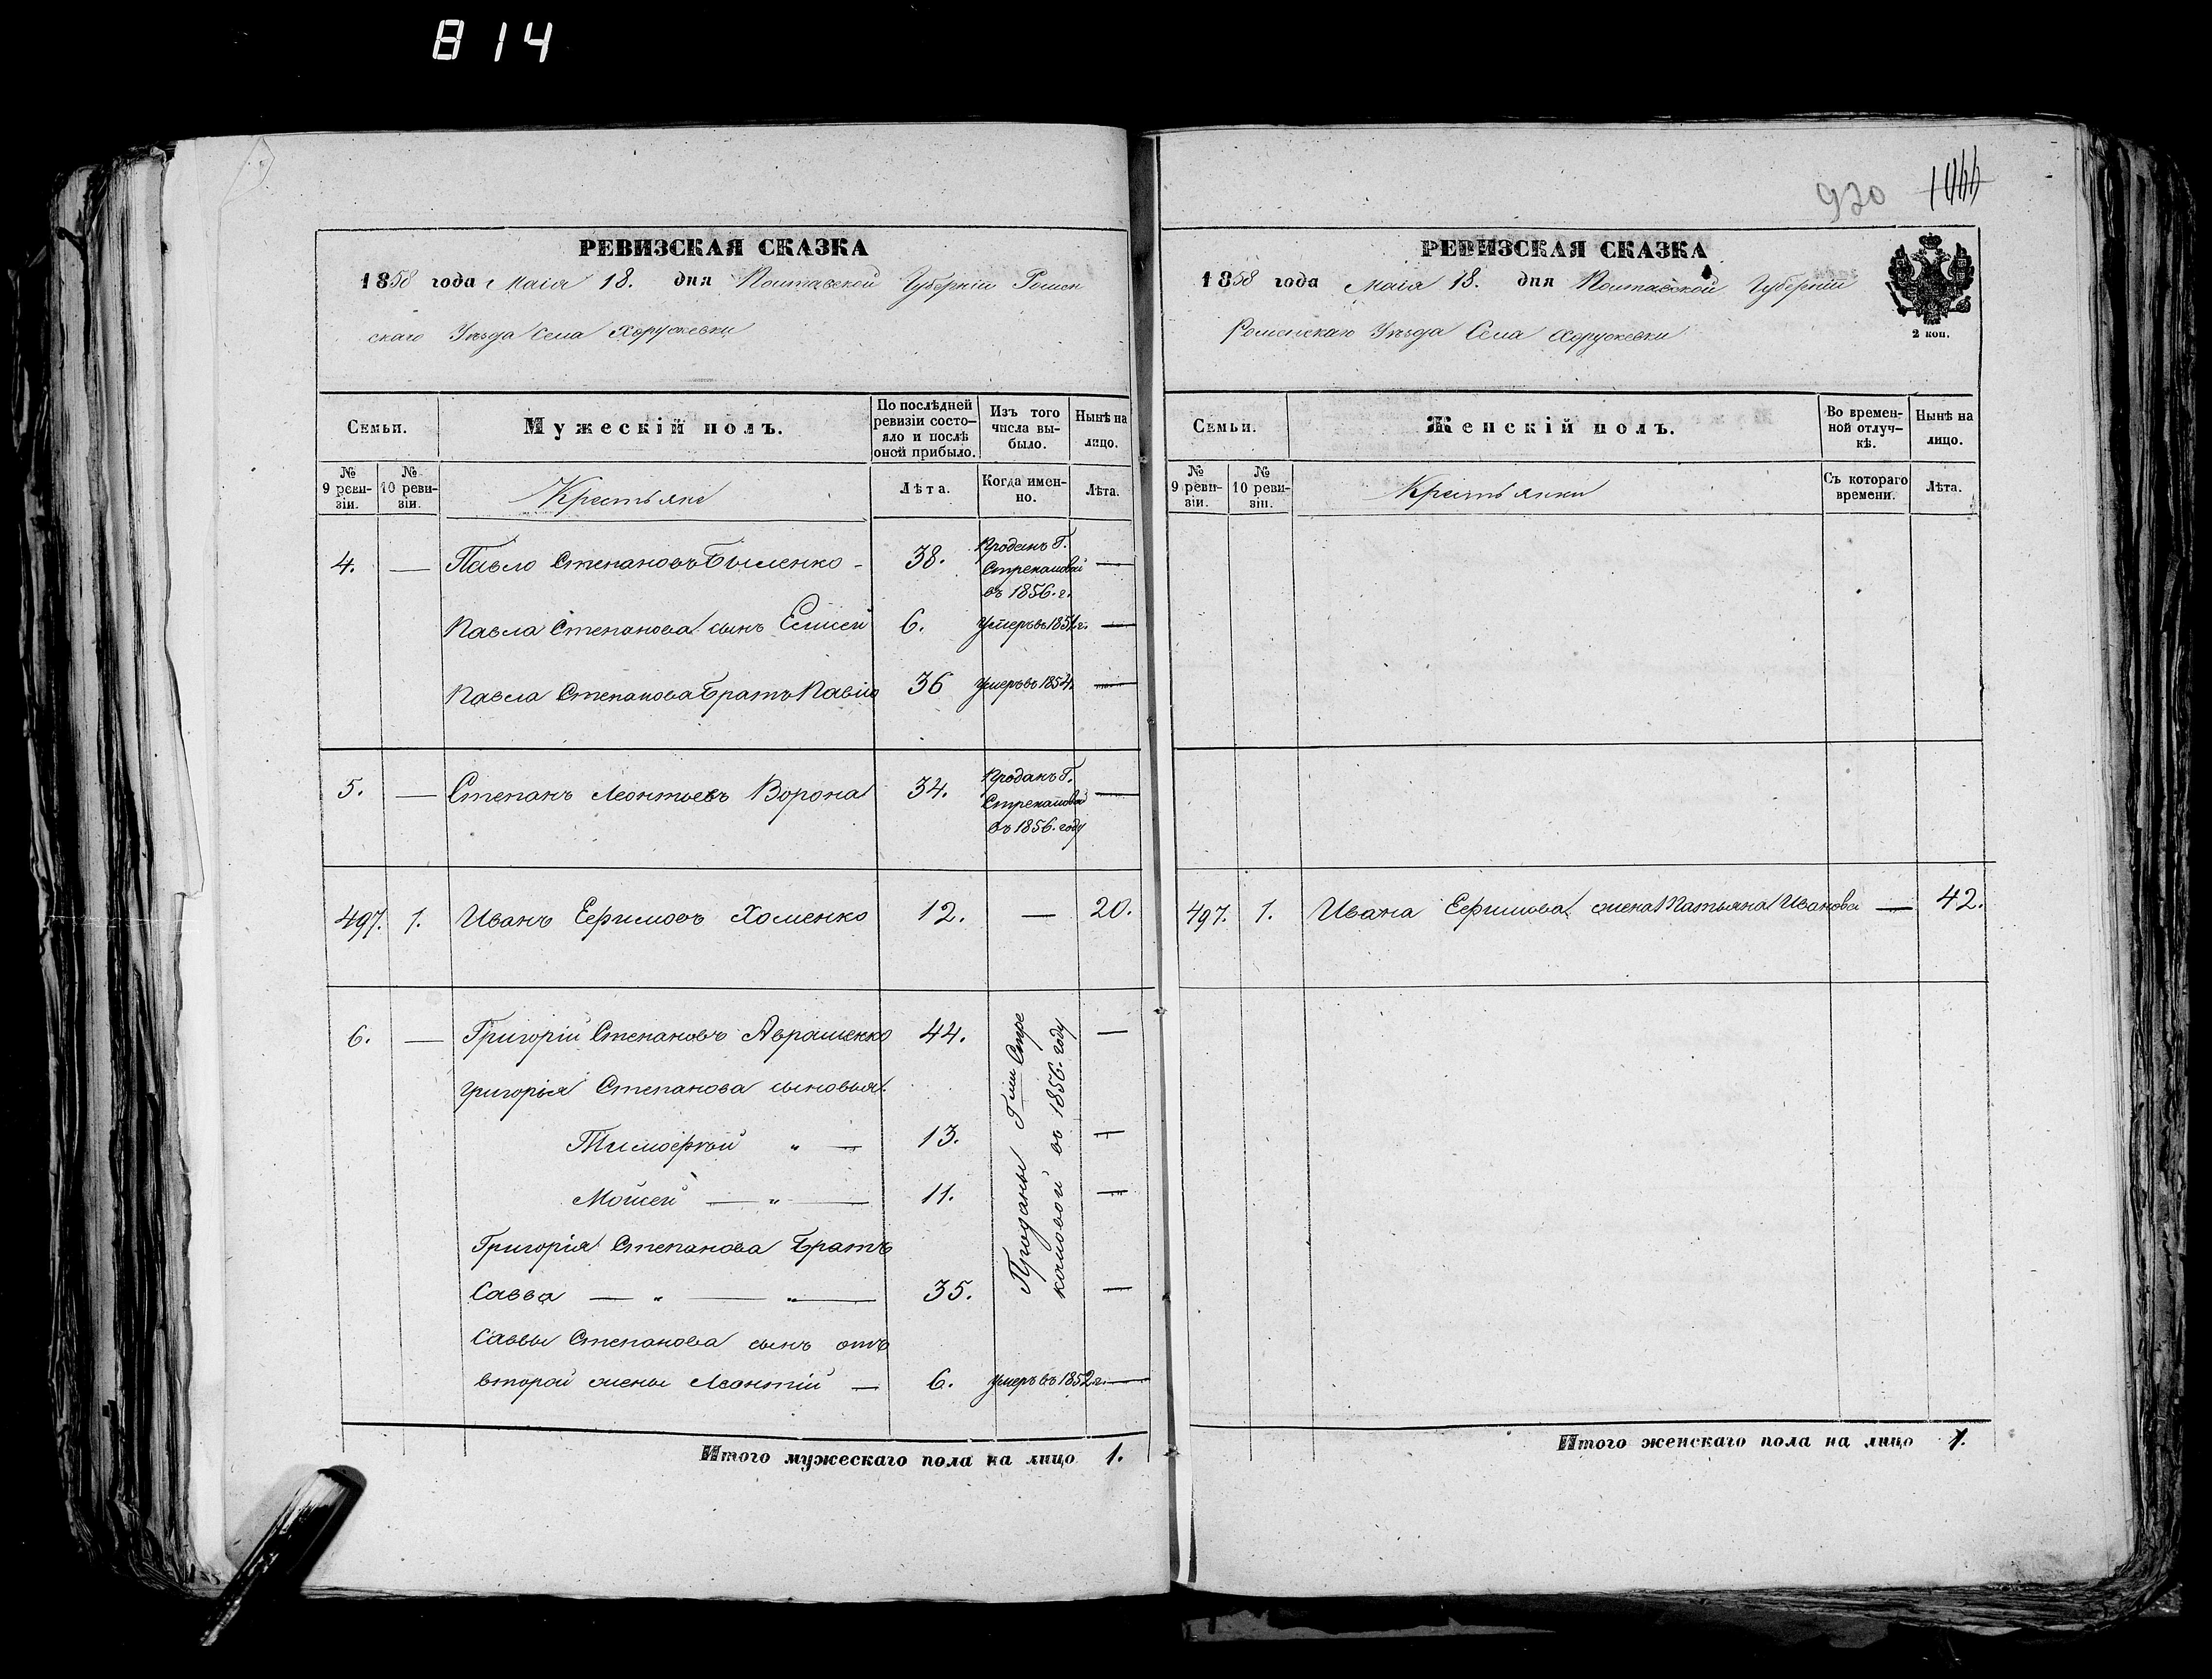 814
920 1066
РЕВИЗСКАЯ СКАЗКА
1858 года Маія 18. дня Полтавской Губерніи Ромен
скаго Уѣзда Села Хоружевки
Семьи.
Мужескій полъ.
По послѣдней
ревизіи состо-
яло и послѣ
оной прибыло.
Изъ того
числа вы-
было.
Нынѣ на
лицо.
№
9 реви-
зіи.
№
10 реви-
зіи.
Крестьяне
Лѣта.
Когда имен-
но.
Лѣта.
4. — Павло Степановъ - 38. Проданъ Г. —
Стрекаловой
въ 1856. г.
Павла Степанова сынъ Елисей 6. Умеръ въ г. —
Павла Степанова братъ Павло 36 Умеръ въ 1854. —
5. — Степанъ Леонтьевъ Ворона 34. Проданъ Г. —
Стрекаловой
въ 1856. году
497. 1. Иванъ Ефимовъ Хоменко 12. — 20.
6. — Григорій Степановъ Аврашенко 44. —
Григорія Степанова сыновья.
Тимофей „ — 13. —
Мойсей — „ — 11. —
Григорія Степанова братъ
Савва — „ — „ — 35. —
Проданы Г-жи Стре
каловой въ 1856. году
Саввы Степанова сынъ отъ
второй жены Леонтій — 6. умеръ въ 1852 г. —
Итого мужескаго пола на лицо 1.
РЕВИЗСКАЯ СКАЗКА
1858 года Маія 18. дня Полтавской Губерніи
Роменскаго Уѣзда Села Хоружевки
2 коп.
Семьи.
Женскій полъ.
Во времен-
ной отлуч-
кѣ.
Нынѣ на
лицо.
№
9 реви-
зіи.
№
10 реви-
зіи.
Крестьянки
Съ котораго
времени.
Лѣта.
497. 1. Ивана Ефимова жена Татьяна Иванова — 42.
Итого женскаго пола на лицо 1.